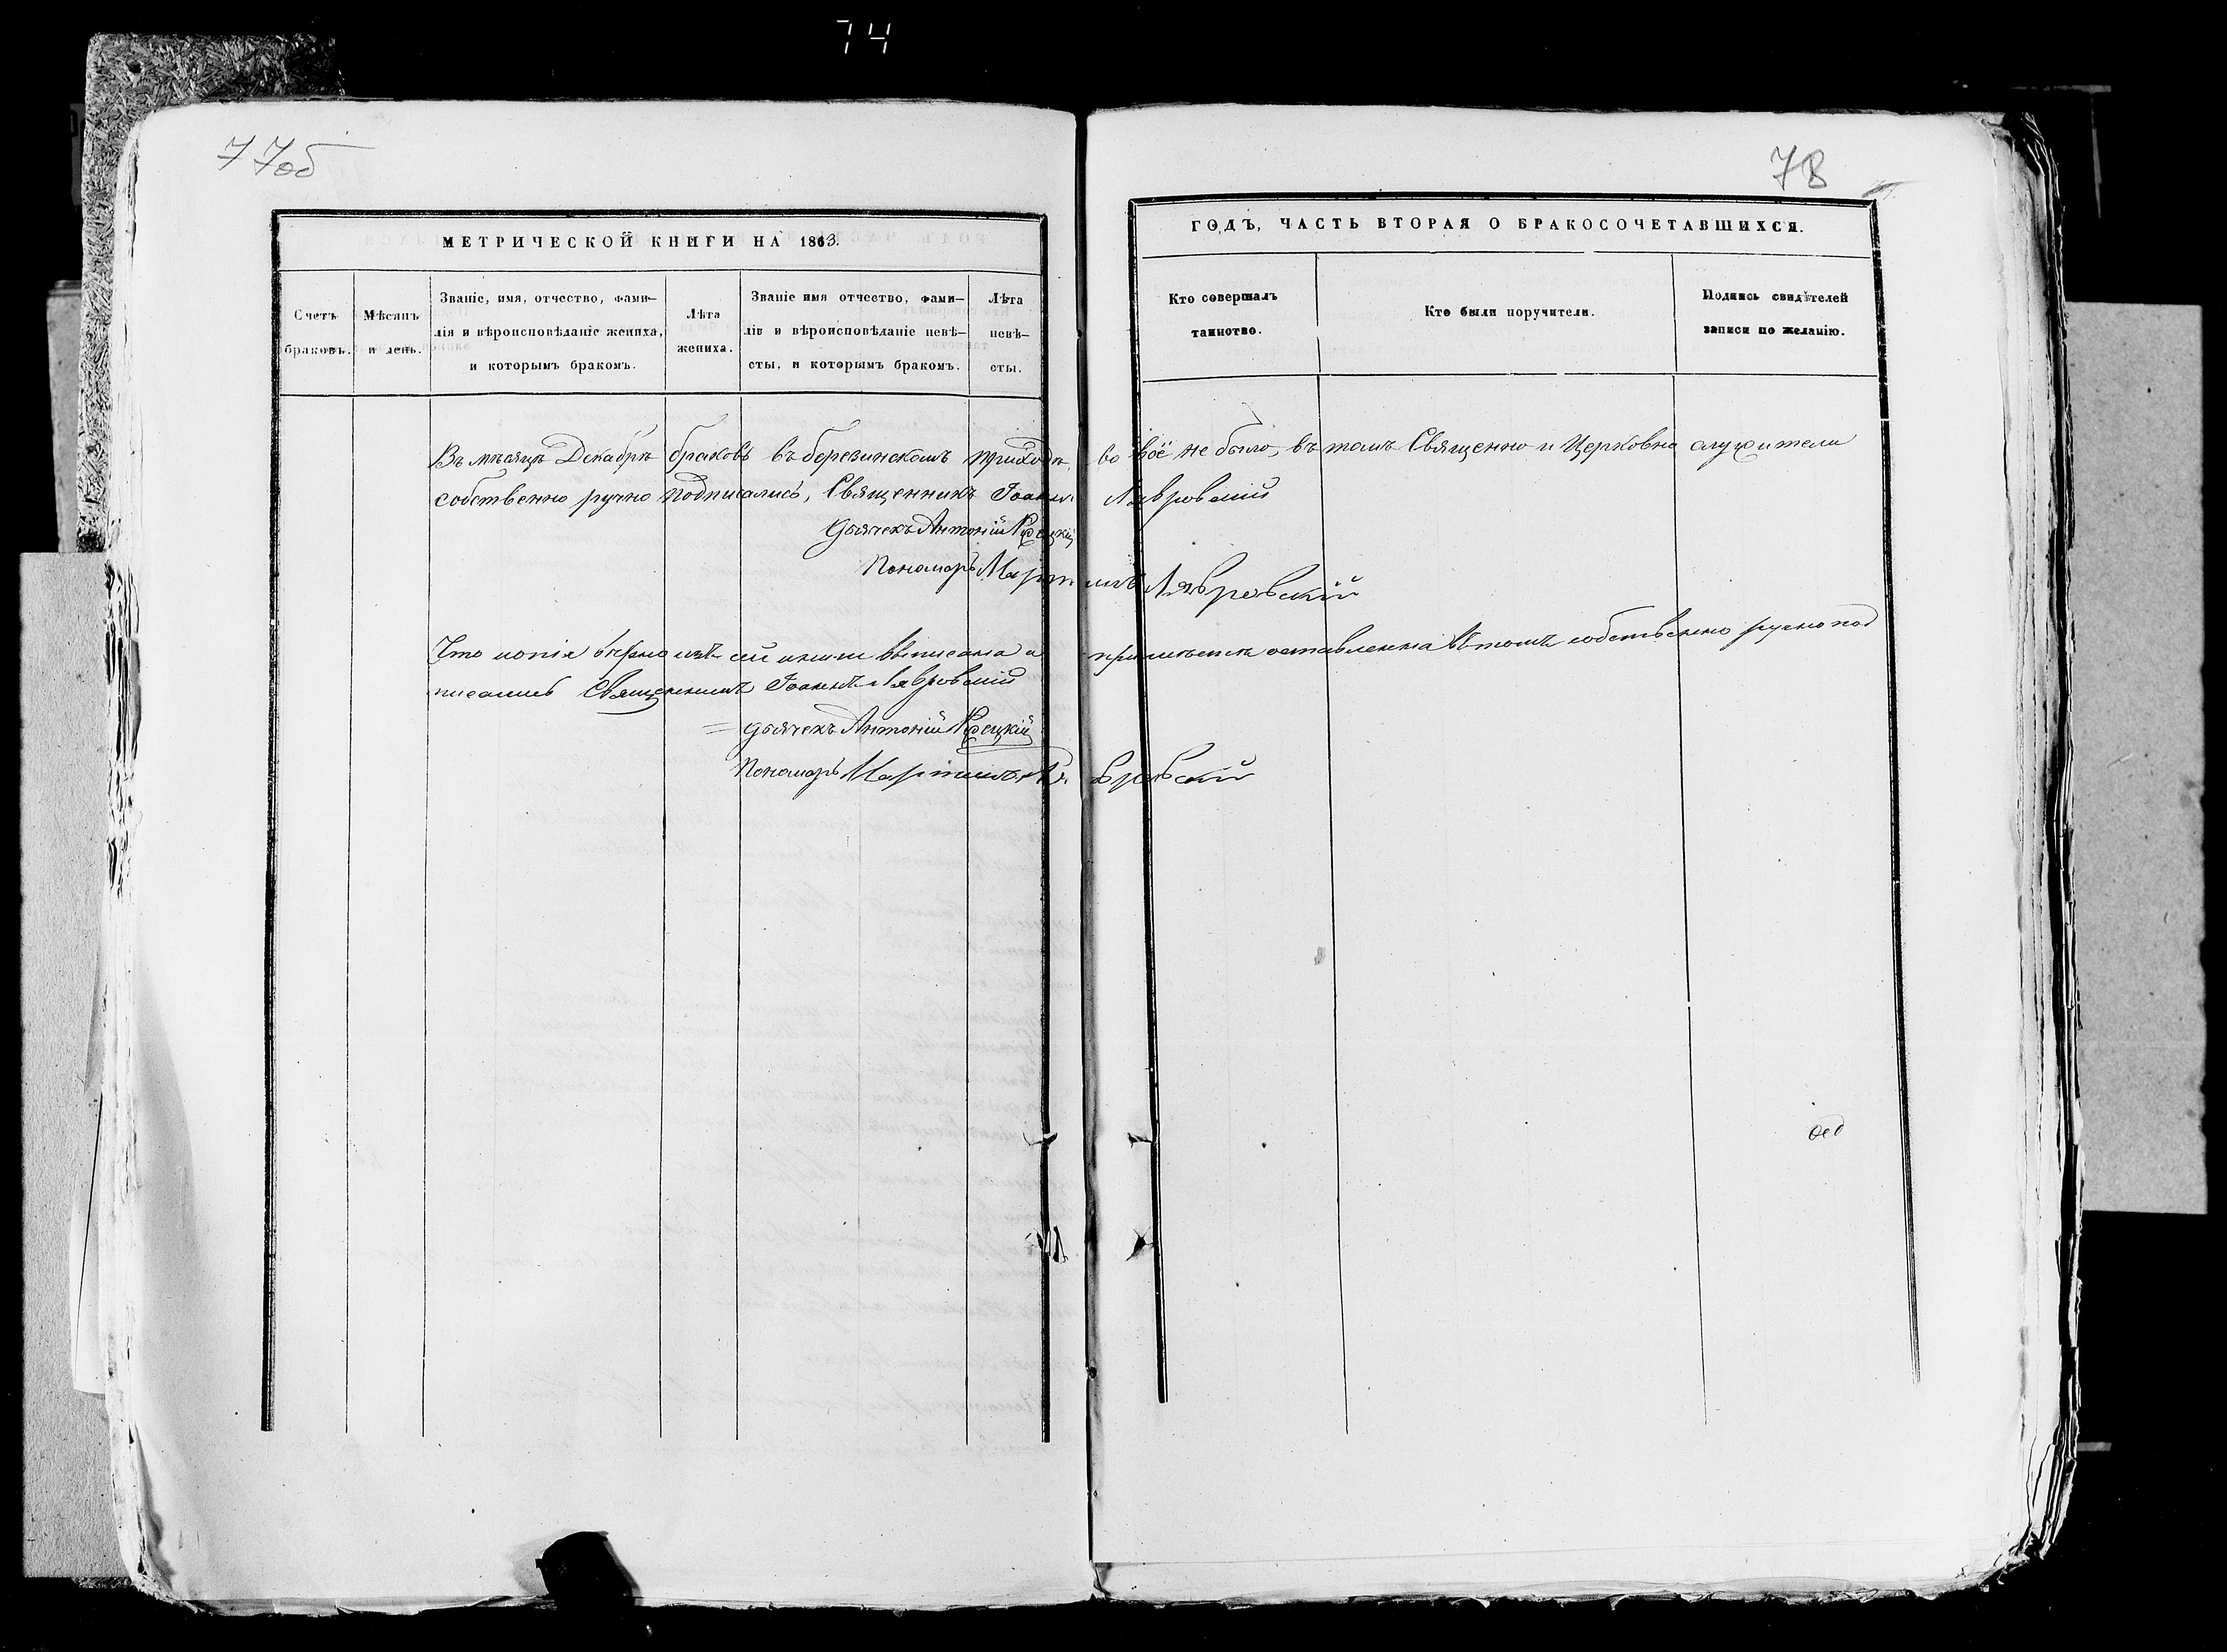 74
77об
78
МЕТРИЧЕСКОЙ КНИГИ НА 1863.
ГОДЪ, ЧАСТЬ ВТОРАЯ О БРАКОСОЧЕТАВШИХСЯ.
Счетъ браковъ.
Мѣсяцъ и день.
Званіе, имя, отчество, фами-
лія и вѣроисповѣданіе жениха,
и которымъ бракомъ.
Лѣта жениха.
Званіе имя отчество, фами-
лія и вѣроисповѣданіе невѣ-
сты, и которымъ бракомъ.
Лѣта невѣ-
сты.
Кто совершалъ
таинство.
Кто были поручители.
Подпись свидѣтелей
записи по желанію.
Въ мѣсяцѣ Декабрѣ браковъ въ березинскомъ приходѣ не было, въ томъ Священно и Церковно служители
собственно ручно подписались, Священникъ Іоаннъ Лавровскій
Дьячекъ Антоній
Пономарь Мартинъ Лавровскій
Что копія вѣрно изъ сей книги выписана и оставленна въ томъ собственно ручно под
писались Священникъ Іоаннъ Лавровскій
дьячекъ Антоній
Пономарь Мартинъ Лавровскій